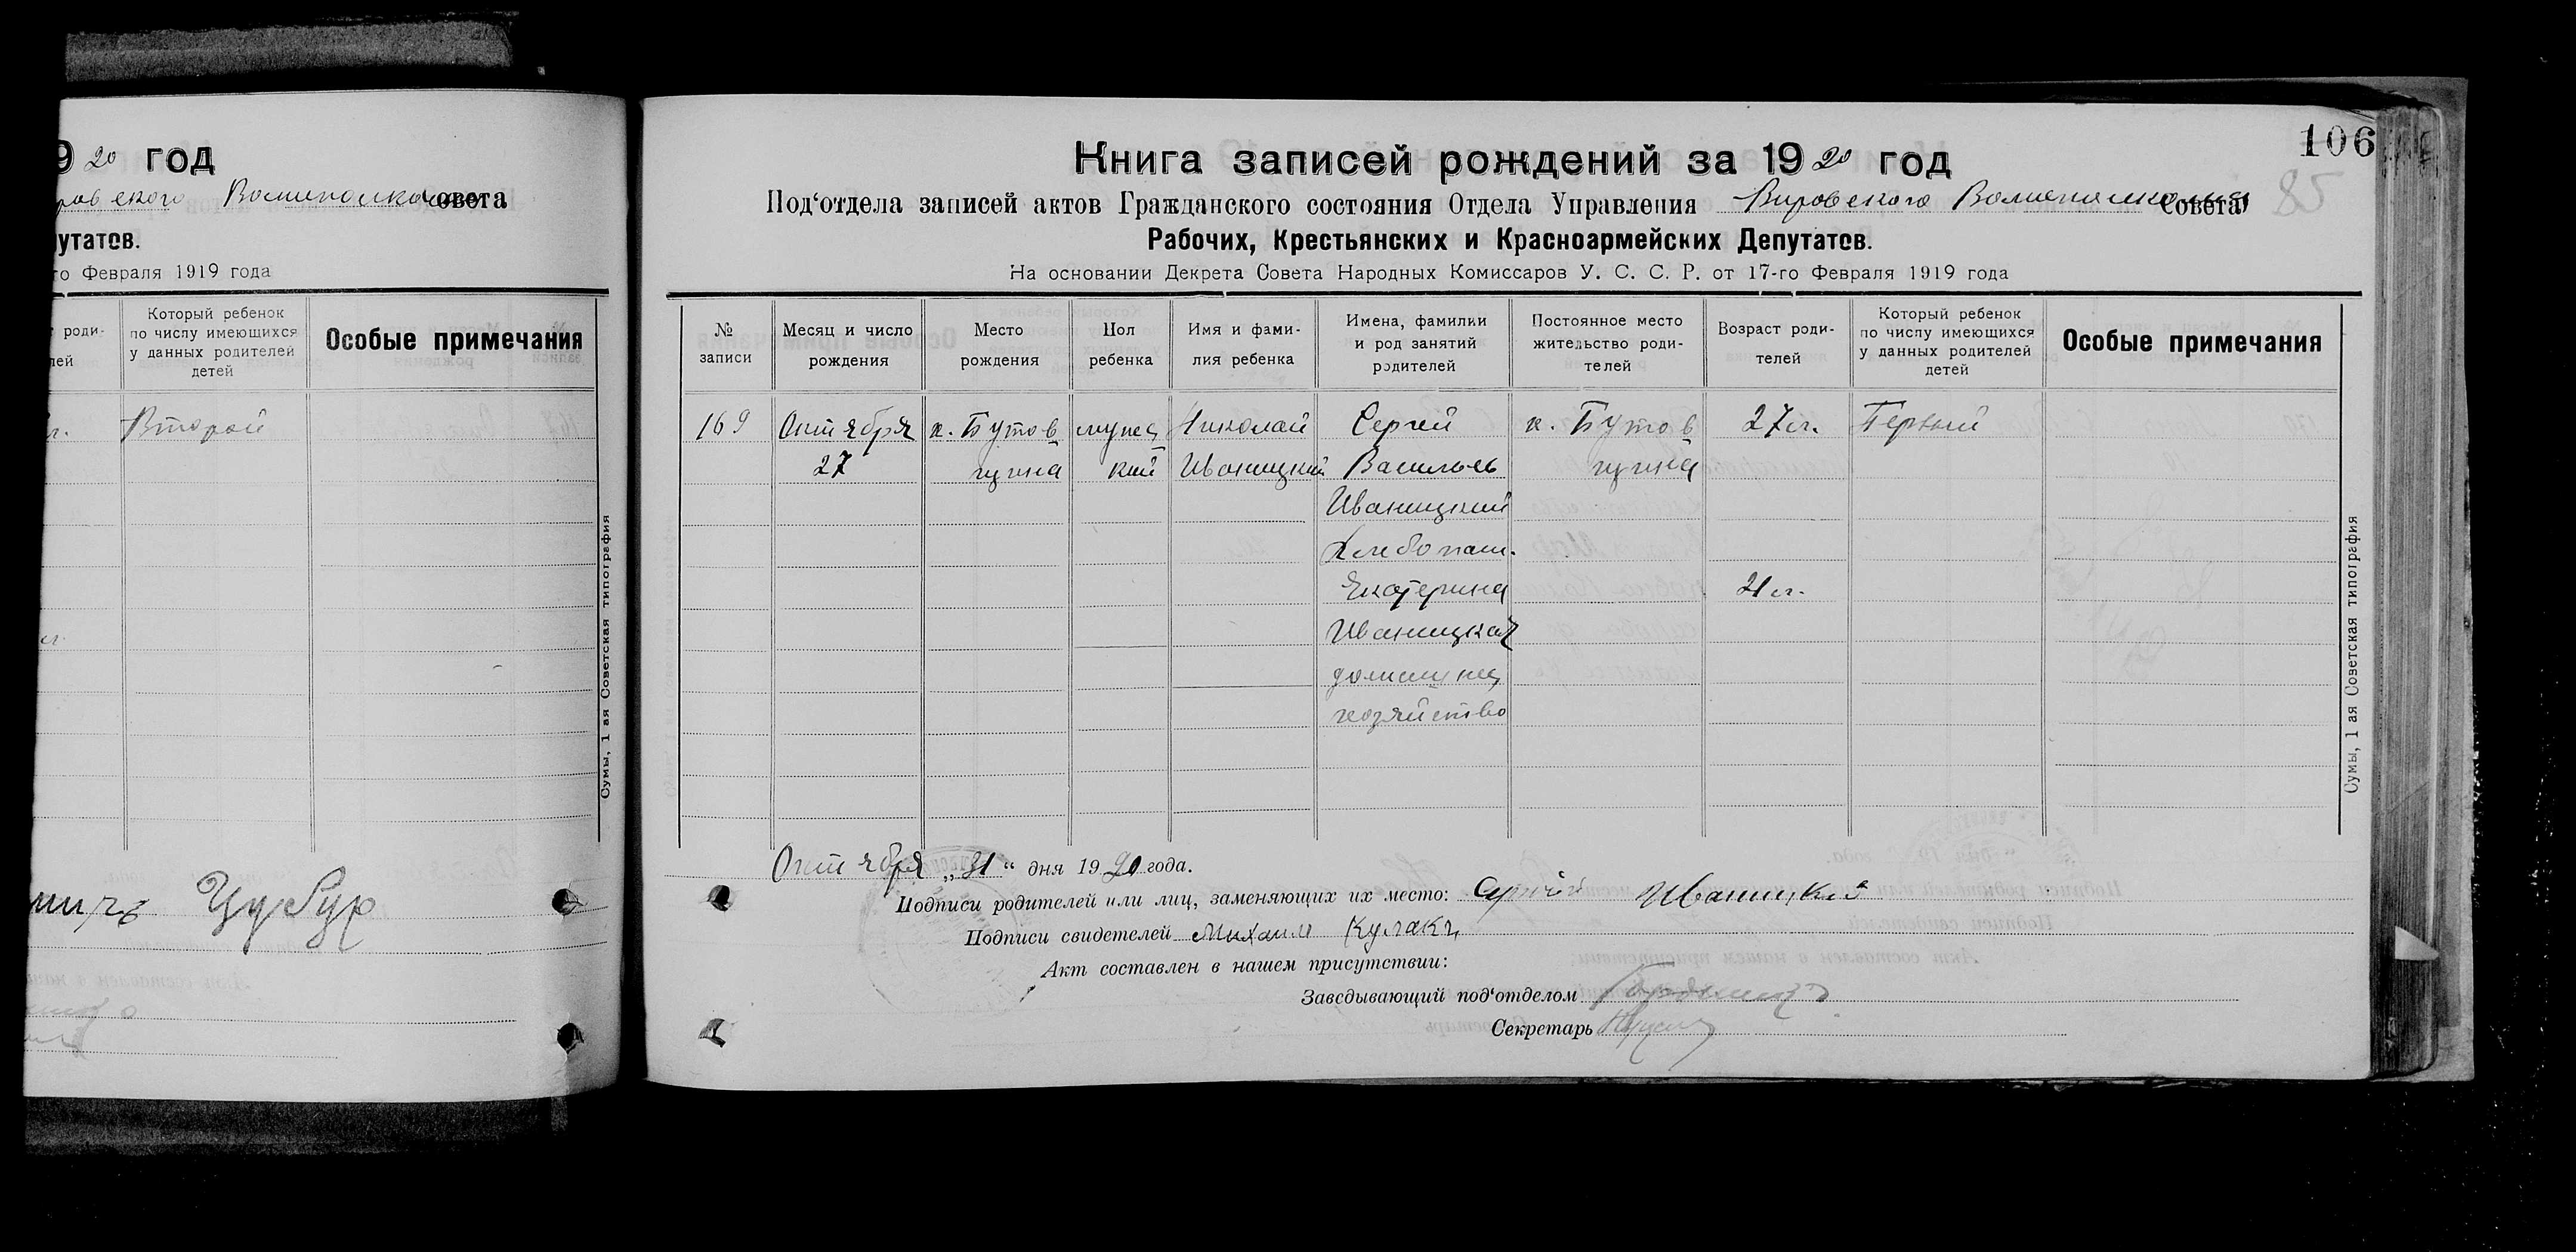 9 20 год
Волисполкома Совета
утатов.
го Февраля 1919 года
роди-
лей
Который ребенок
по числу имеющихся
у данных родителей
детей
Особые примечания
Второй
Цубур
Сумы, 1 ая Советская типография
106
85
Книга записей рождений за 19 20 год
Под‘отдела записей актов Гражданского состояния Отдела Управления Вировского Волисполкома Совета
Рабочих, Крестьянских и Красноармейских Депутатов.
На основании Декрета Совета Народных Комиссаров У. С. С. Р. от 17-го Февраля 1919 года
№
записи
Месяц и число
рождения
Место
рождения
Пол
ребенка
Имя и фами-
лия ребенка
Имена, фамилии
и род занятий
родителей
Постоянное место
жительство роди-
телей
Возраст роди-
телей
Который ребенок
по числу имеющихся
у данных родителей
детей
Особые примечания
169
Октября
27
х. Бутов
щина
мужес
кий
Николай
Иваницкий
Сергей
Васильев
Иваницкий
Хлебопаш.
Екатерина
Иваницкая
домашнее
хозяйство
х. Бутов
щина
27 л.
21 л.
Первый
Октября „31“ дня 1920 года.
Подписи родителей или лиц, заменяющих их место: Сергей Иваницкий
Подписи свидетелей Михаил Кулакъ
Акт составлен в нашем присутствии:
Заведывающий под‘отделом
Секретарь
Сумы, 1 ая Советская типография